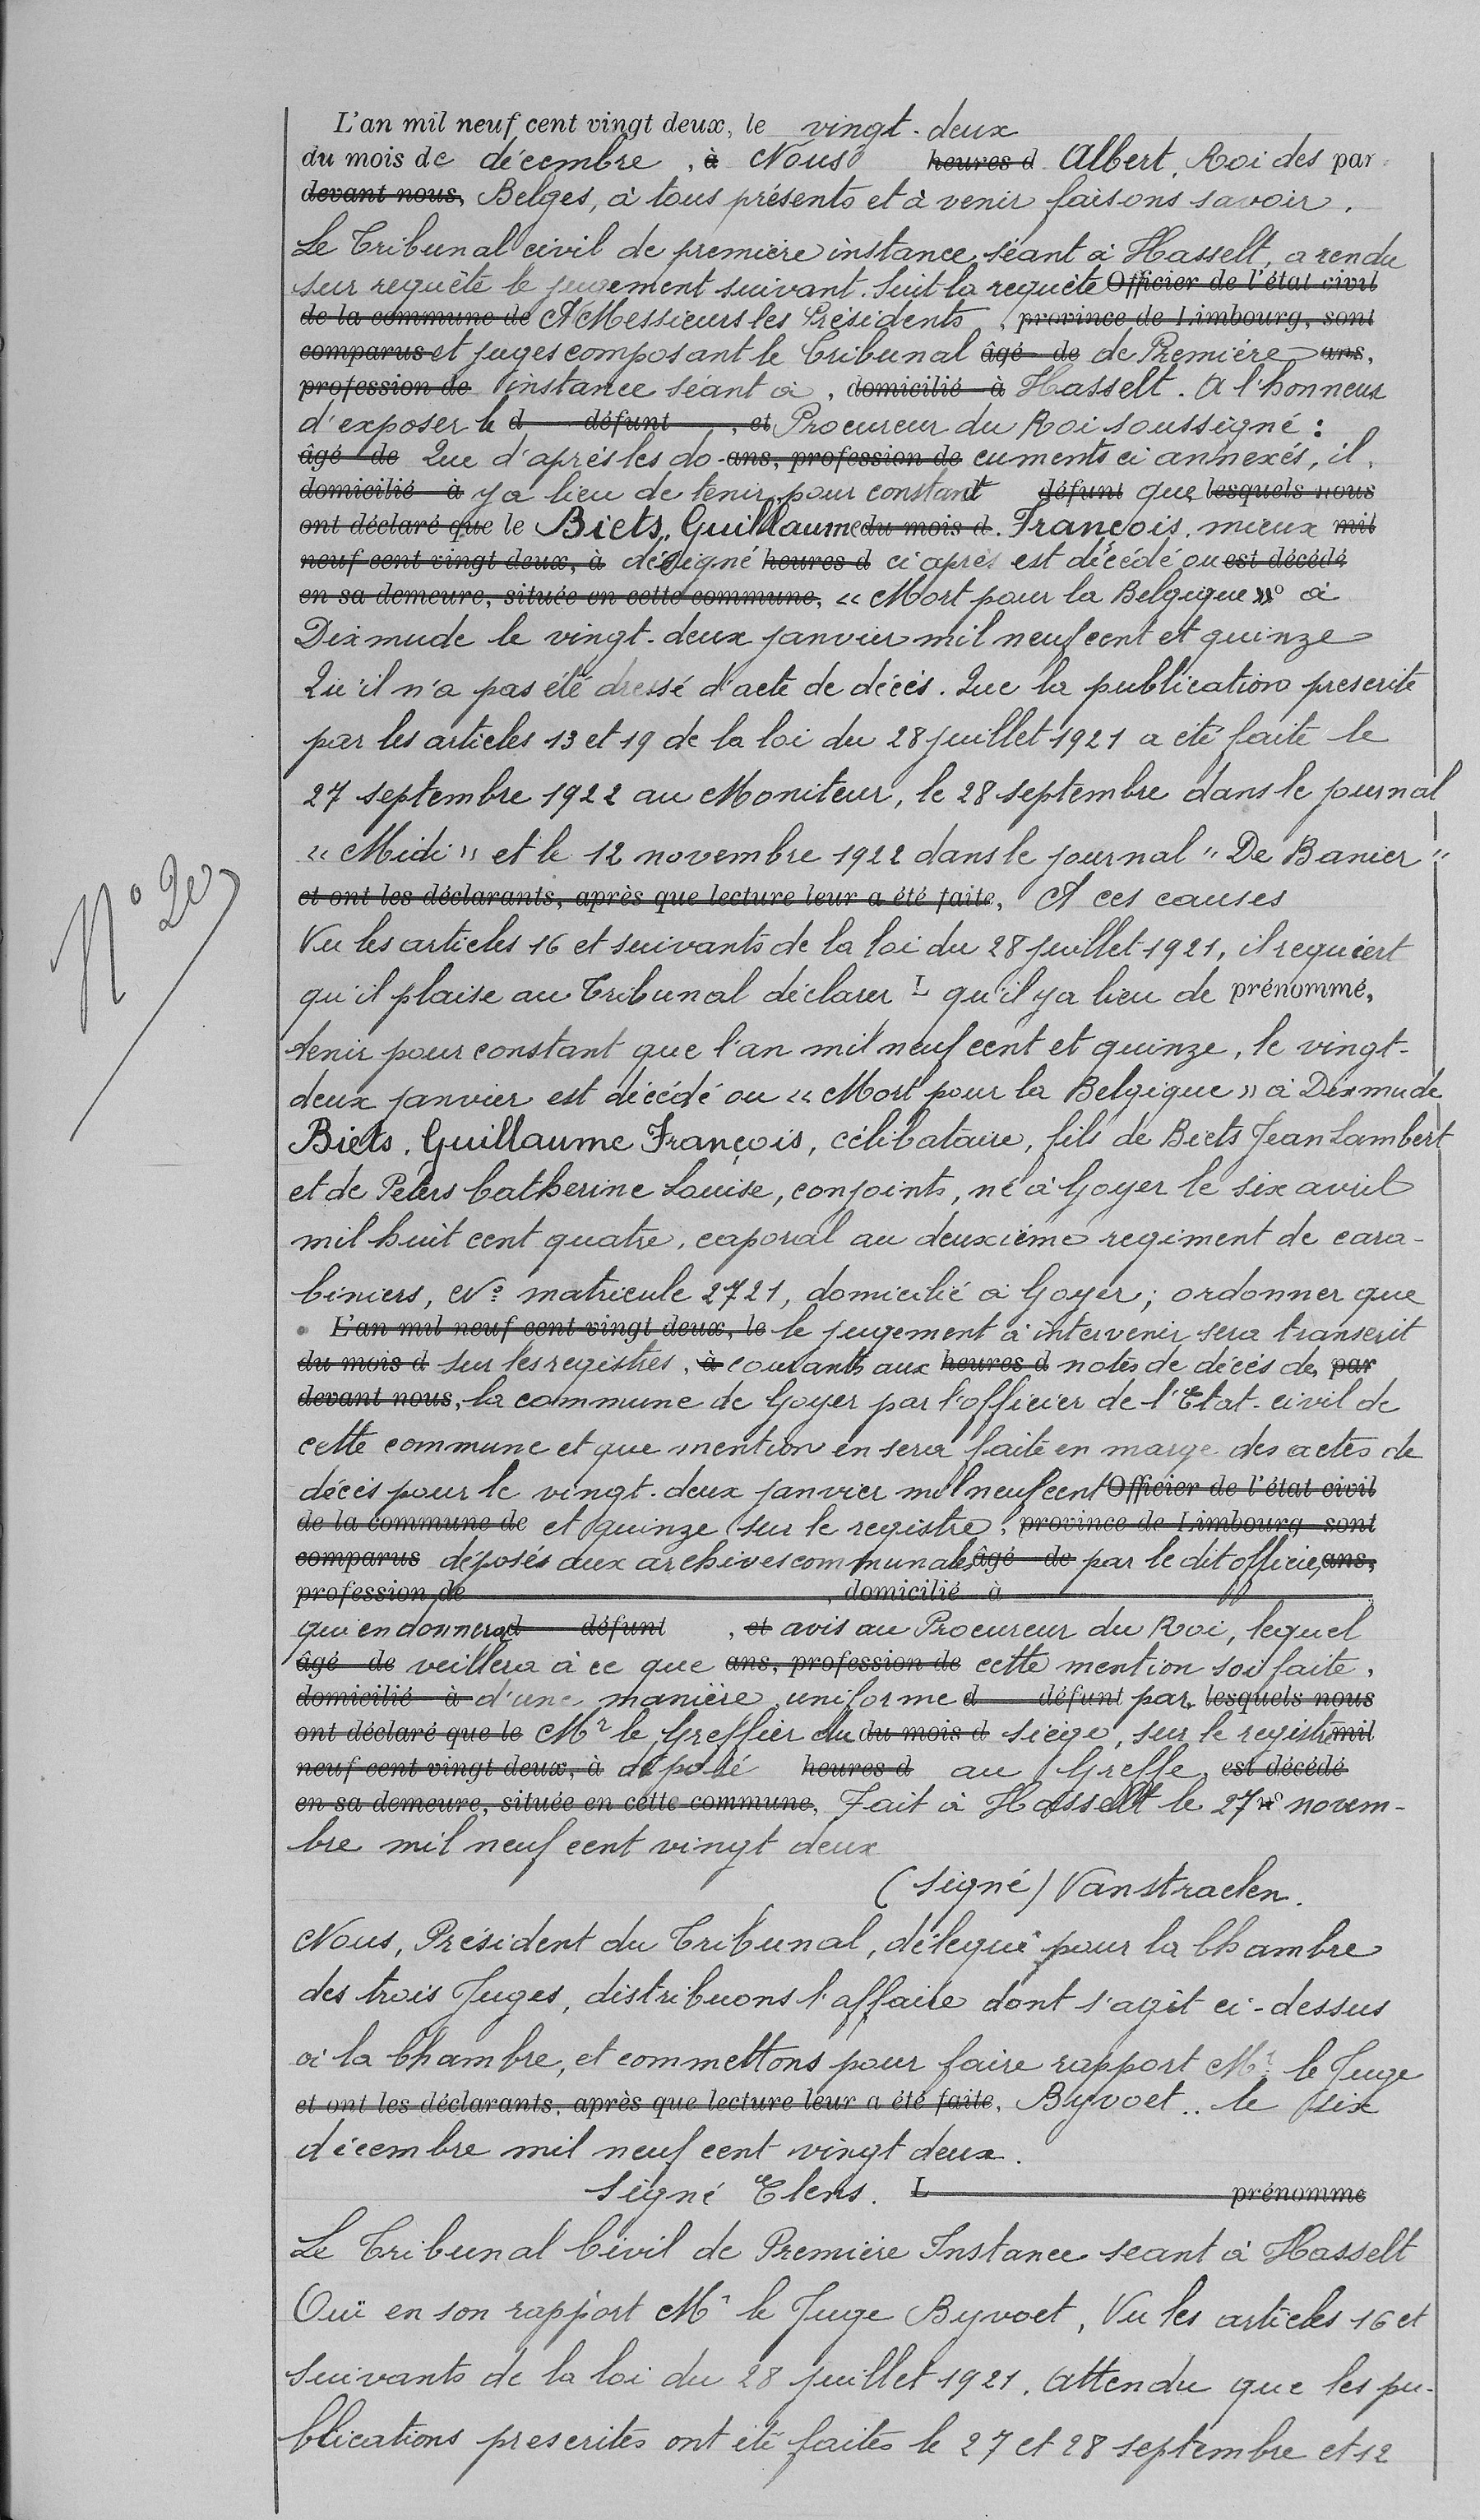 L'an mil neuf cent vingt deux, le vingt-deux
du mois de décembre, à Nous heures d Albert, Roi des par
devant nous, Belges, à tous présents et à venir faisons savoir.
Le Tribunal civil de première instance séant à Hasselt, a rendu
sur requête le jugement suivant. Suit la requête Officier de l'état civil
de la commune de A Messieurs les Présidents, province de Limbourg, sont
comparus et juges composant le Tribunal âgé de de Première ans,
profession de instance séant à, domicilié à Hasselt. A l'honneur
d'exposer le d défunt, et Procureur du Roi soussigné :
âgé de Que d'après les do- ans, profession de cuments ci annexés, il
domicilié à y a lieu de tenir pour constant défunt que lesquels nous
ont déclaré que le Biets, Guillaume du mois d François, mieux mil
neuf cent vingt deux, à désigné heures d ci après est décédé ou est décédé
en sa demeure, située en cette commune, « Mort pour la Belgique » à
Dixmude le vingt-deux janvier mil neuf cent et quinze
Qu'il n'a pas été dressé d'acte de décès. Que la publication prescrite
par les articles 13 et 19 de la loi du 28 juillet 1921 a été faite le
27 septembre 1922 au Moniteur, le 28 septembre dans le journal
« Midi » et le 12 novembre 1922 dans le journal " De Banier "
et ont les déclarants, après que lecture leur a été faite, A ces causes
N° 20
Vu les articles 16 et suivants de la loi du 28 juillet 1921, il requiert
qu'il plaise au Tribunal déclarer L qu'il y a lieu de prénommé,
tenir pour constant que l'an mil neuf cent et quinze, le vingt-
deux janvier est décédé ou « Mort pour la Belgique » à Dixmude
Biets, Guillaume François, célibataire, fils de Biets Jean Lambert
et de Peters Catherine Louise, conjoints, né à Goyer le six avril
mil huit cent quatre, caporal au deuxième regiment de cara-
biniers, N° matricule 2721, domicilié à Goyer; ordonner que
L'an mil neuf cent vingt deux, le le jugement à intervenir sera transcrit
du mois d sur les registres, à courants aux heures d notes de décès de par
devant nous, la commune de Goyer par l'officier de l'Etat-civil de
cette commune et que mention en sera faite en marge des actes de
décès pour le vingt-deux janvier mil neuf cent Officier de l'état civil
de la commune de et quinze sur le registre, province de Limbourg sont
comparus déposés aux archives communales âgé de par le dit officier, ans,
profession de, domicilié à
qui en donnera d défunt, et avis au Procureur du Roi, lequel
âgé de veillera à ce que ans, profession de cette mention soi faite,
domicilié à d'une manière uniforme d défunt par lesquels nous
ont déclaré que le Mr le Greffier du du mois d siège, sur le registre mil
neuf cent vingt deux, à déposé heures d au Greffe, est décédé
en sa demeure, située en cette commune, Fait à Hasselt le 27 novem-
bre mil neuf cent vingt deux
(signé) Vanstraelen.
Nous, Président du Tribunal, délégué pour la Chambre
des trois Juges, distribuons l'affaire dont s'agit ci-dessus
à la Chambre, et commettons pour faire rapport Mr le Juge
et ont les déclarants, après que lecture leur a été faite, Byvoet.. le six
décembre mil neuf cent vingt deux.
Signé Elens. L prénommé
Le Tribunal Civil de Première Instance seant à Hasselt
Ouï en son rapport Mr le Juge Byvoet, Vu les articles 16 et
suivants de la loi du 28 juillet 1921. Attendu que les pu-
blications prescrites ont été faites le 27 et 28 septembre et 12